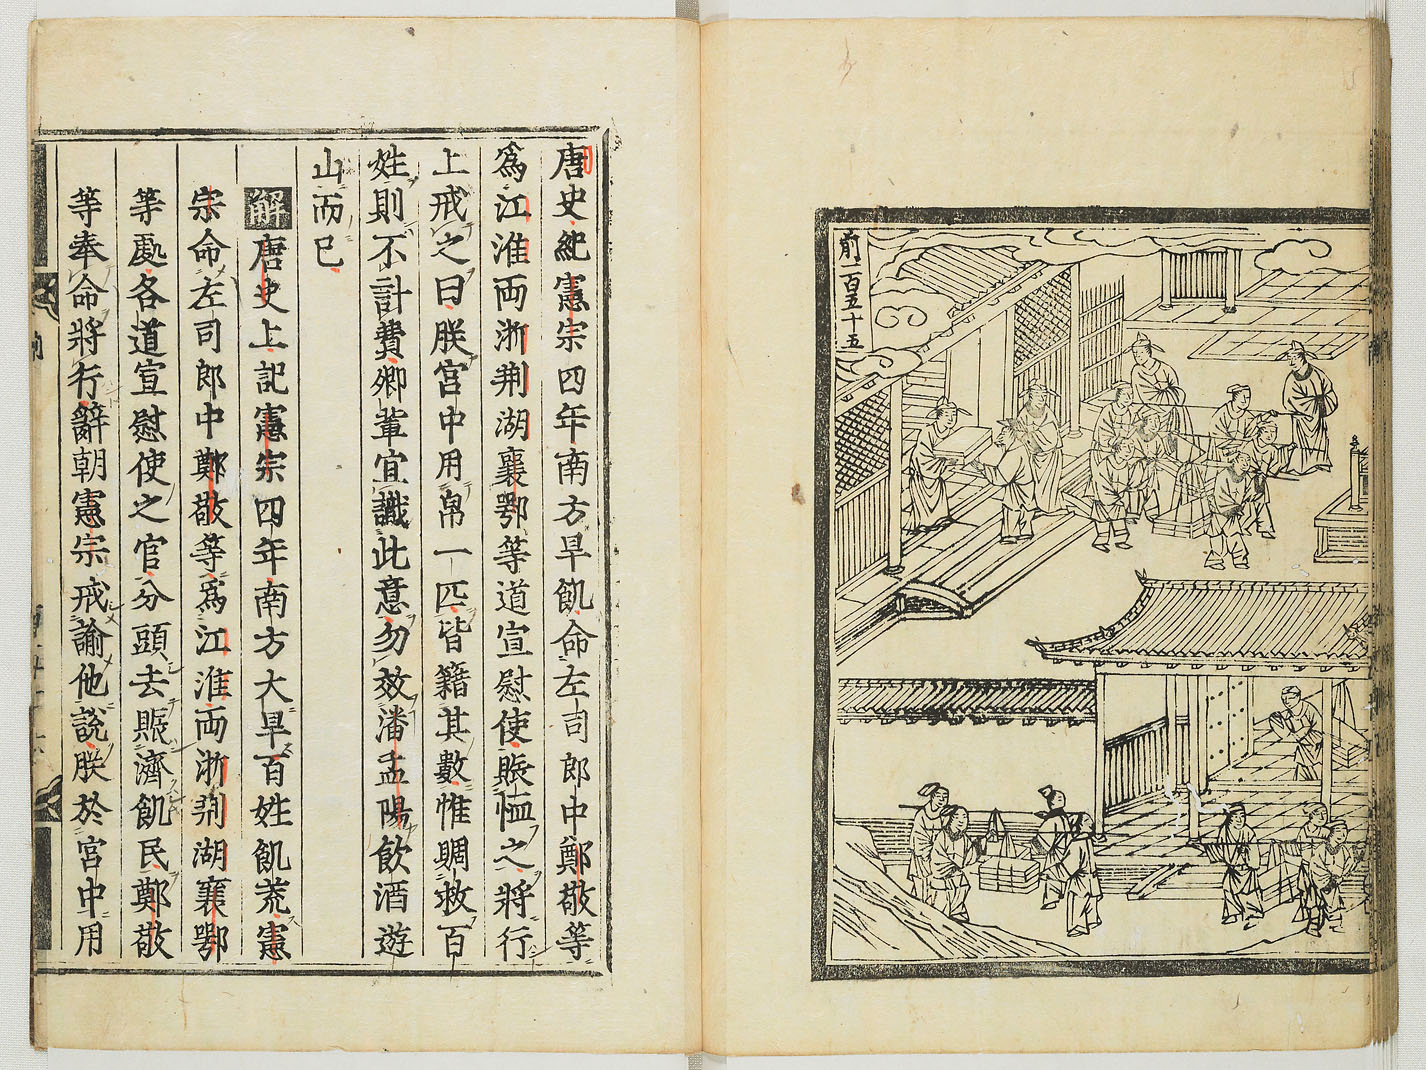 前一百五十五
唐史紀憲宗四年南方旱飢命左司郎中鄭敬等
爲江淮両浙荆湖襄鄂等道宣慰使賑恤之將行
上戒之曰朕宮中用帛一匹皆籍其數惟賙救百
姓則不計費卿輩宜識此意勿效潘孟陽飲酒遊
山而已
解唐史上記憲宗四年南方大旱百姓飢荒憲
宗命左司郎中鄭敬等爲江淮両浙荆湖襄鄂
等處各道宣慰使之官分頭去賑濟飢民鄭敬
等奉命將行辭朝憲宗戒諭他說朕於宮中用